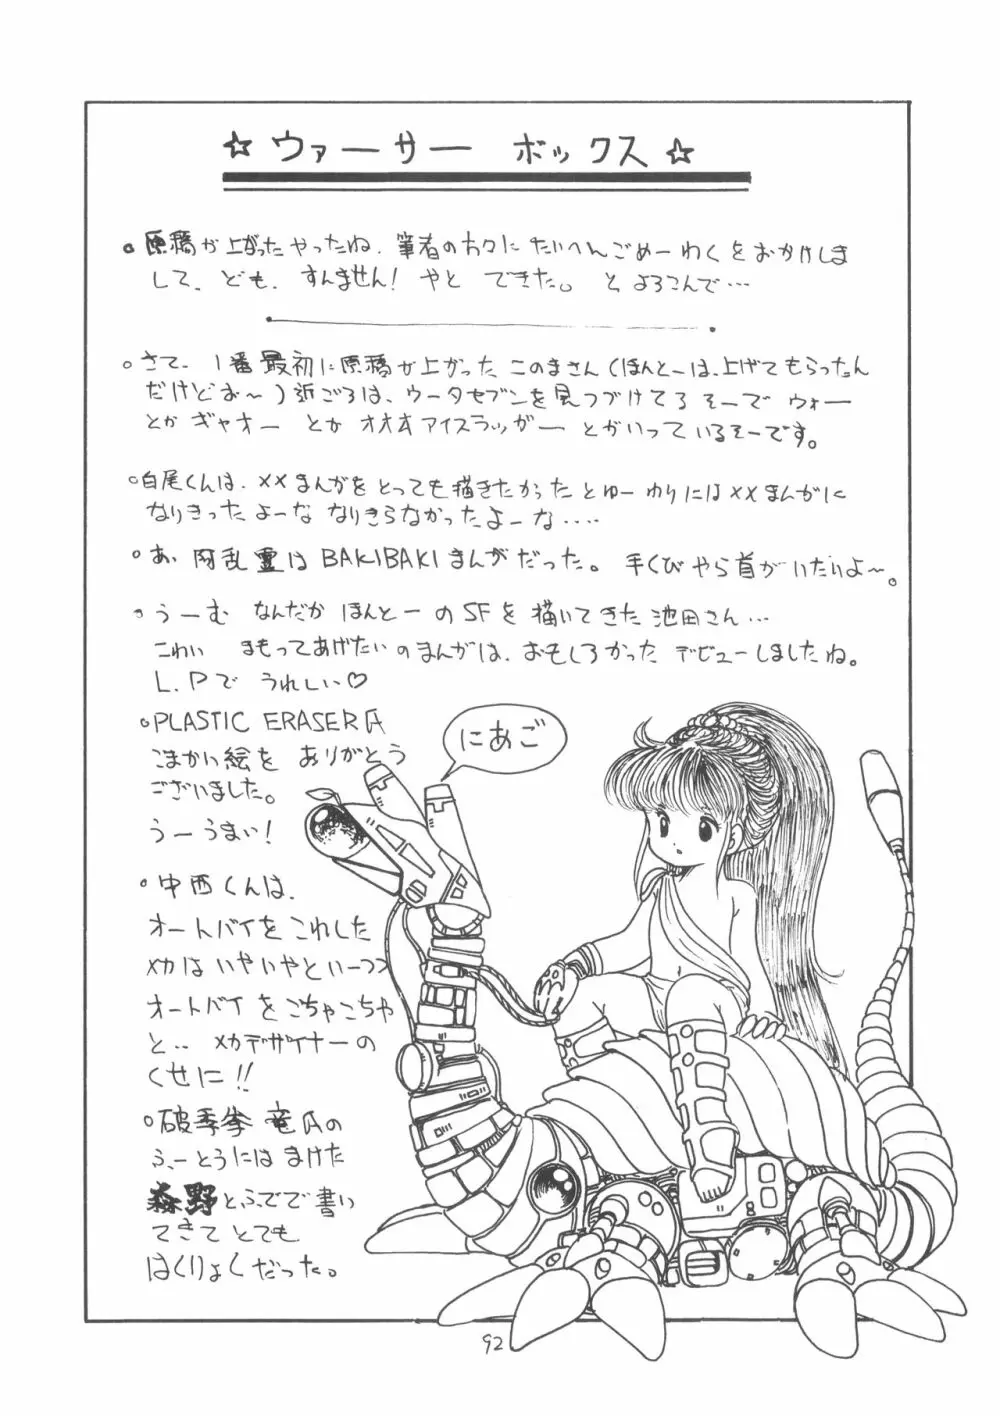 ☆ ウァーサー ボックス ☆
。原稿が上がったやったね、筆者の方々にたいへんごめーわくをおかけしま
して、ども、すんません! やと できた。 と よろこんで…
。さて、1番最初に原稿が上がった このまさん(ほんとーは、上げてもらったん
だけどぉ〜)近ごろは、ウータセブンを見つづけてる そーで ウォー
とか ギャオー とか オオオアイスラッガー とかいっているそーです。
。白尾くんは、××まんがをとっても描きたかったとゆー ゆりには××まんがに
なりきったよーな なりきらなかったよーな‥‥
。あ、阿乱霊はBAKIBAKIまんがだった。 手くびやら首がいたいよ〜。
。うーむ なんだか ほんとーのSFを描いてきた池田さん…
こわい まもってあげたいのまんがは、おもしろかった デビューしましたね。
L.Pで うれしい♡
。PLASTIC ERASER氏
こまかい絵を ありがとう
ございました。
うーうまい!
にあご
。中西くんは、
オートバイをこれした
メカはいやいやといーつつ
オートバイをごちゃごちゃ
と‥ メカデザイナーの
くせに!!
。破季拳 竜氏の
ふーとうには まけた
森野とふでで書い
てきて とても
はくりょくだった。
92